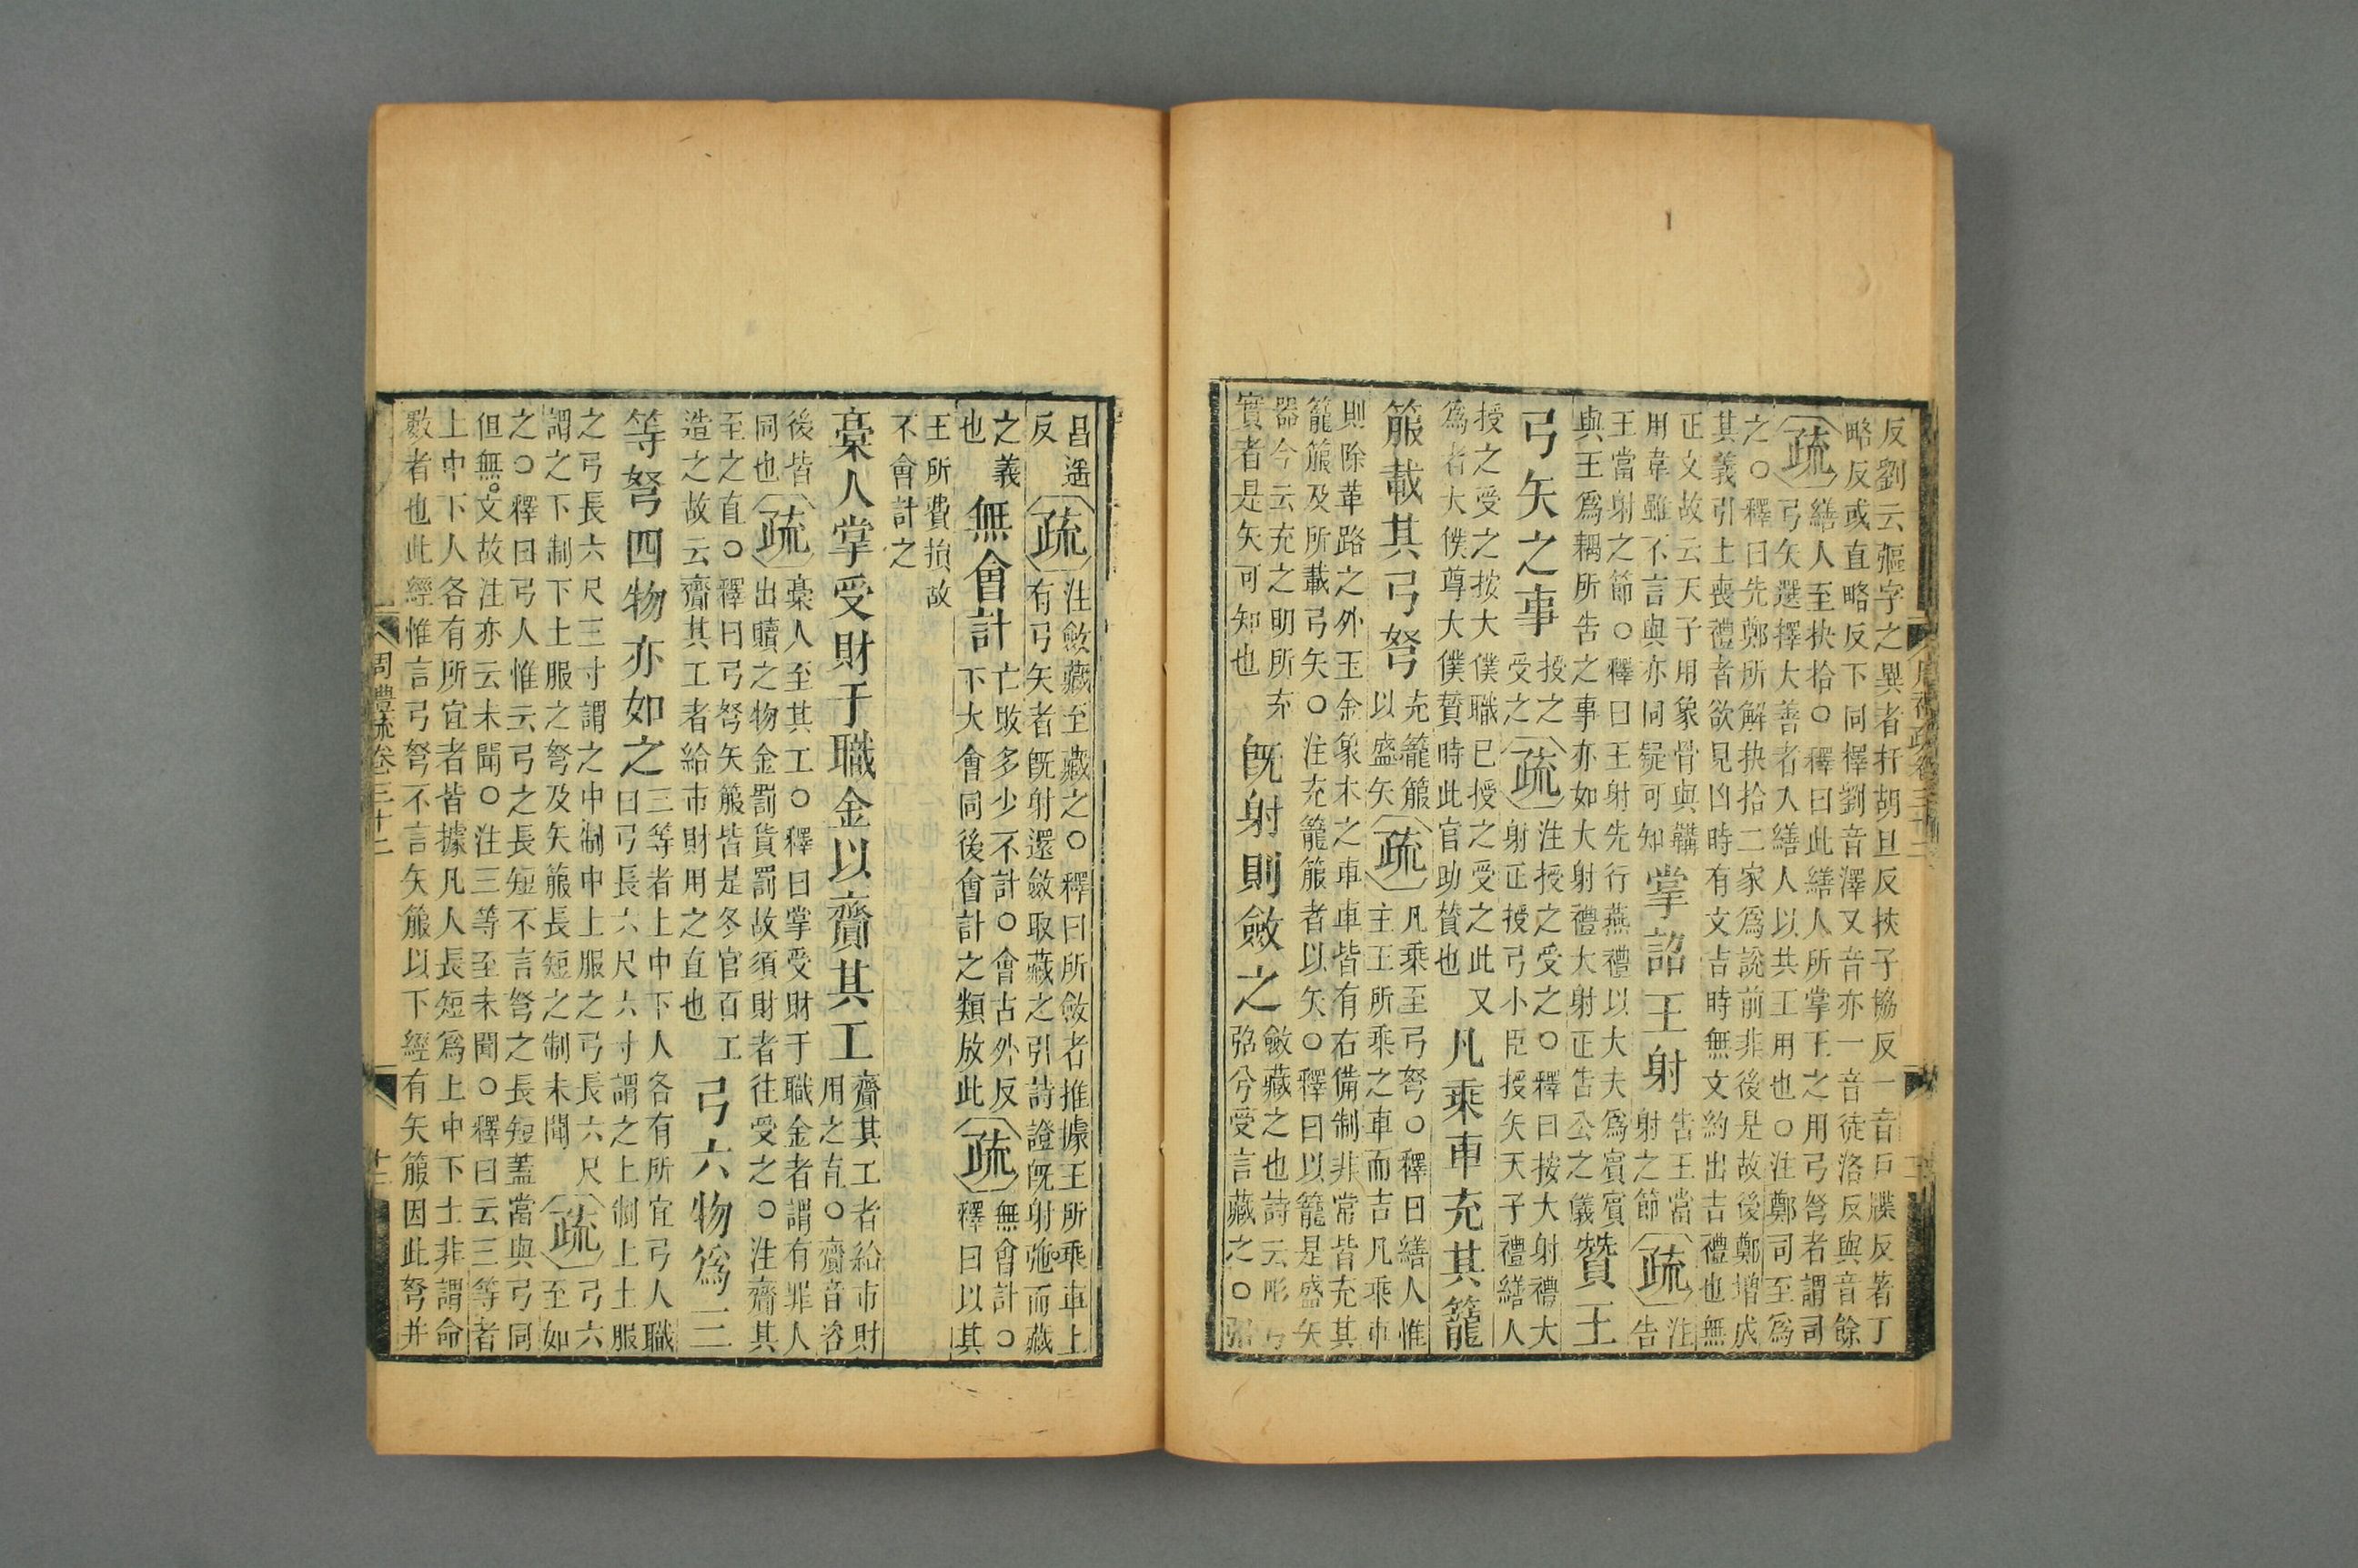 反劉云彄字之異者扞胡旦反挾子協反一音戶牒反著丁
略反或直略反下同擇劉音澤又音亦一音徒洛反與音餘
疏
繕人至抉拾○釋曰此繕人所掌王之用弓弩者謂司
弓矢選擇大善者入繕人以共王用也○注鄭司至為
之○釋曰先鄭所解抉拾二家為說前非後是故後鄭增成
其義引士喪禮者欲見凶時有文吉時無文約出吉禮也無
正文故云天子用象骨與韝
用韋雖不言與亦同疑可知
掌詔王射
告王當
射之節
疏
注
告
王當射之節○釋曰王射先行燕禮以大夫為賓賓
與王為耦所告之事亦如大射禮大射正告公之儀
贊王
弓矢之事
授之
受之
疏
注授之受之○釋曰按大射禮大
射正授弓小臣授矢天子禮繕人
授之受之按大僕職已授之受之此又
為者大僕尊大僕贊時此官助贊也
凡乘車充其籠
箙載其弓弩
充籠箙
以盛矢
疏
凡乘至弓弩○釋曰繕人惟
主王所乘之車而吉凡乘車
則除革路之外玉金象木之車車皆有右備制非常皆充其
籠箙及所載弓矢○注充籠箙者以矢○釋曰以籠是盛矢
器今云充之明所充
實者是矢可知也
既射則斂之
斂藏之也詩云彤弓
弨兮受言藏之○弨
周禮疏卷三十二
昌遙
反
疏
注斂藏至藏之○釋曰所斂者推據王所乘車上
有弓矢者既射還斂取藏之引詩證既射弛而藏
之義
也
無會計
亡敗多少不計○會古外反
下大會同後會計之類放此
疏
無會計○
釋曰以其
王所費損故
不會計之
槀人掌受財于職金以齎其工
齎其工者給市財
用之直○齎音咨
後皆
同也
疏
槀人至其工○釋曰掌受財于職金者謂有罪人
出贖之物金罰貨罰故須財者往受之○注齎其
至之直○釋曰弓弩矢箙皆是冬官百工
造之故云齎其工者給市財用之直也
弓六物為三
等弩四物亦如之
三等者上中下人各有所宜弓人職
曰弓長六尺六寸謂之上制上士服
之弓長六尺三寸謂之中制中士服之弓長六尺
謂之下制下士服之弩及矢箙長短之制未聞
疏
弓六
至如
之○釋曰弓人惟云弓之長短不言弩之長短蓋當與弓同
但無文故注亦云未聞○注三等至未聞○釋曰云三等者
上中下人各有所宜者皆據凡人長短為上中下士非謂命
數者也此經惟言弓弩不言矢箙以下經有矢箙因此弩并
周禮疏卷三十二
十二